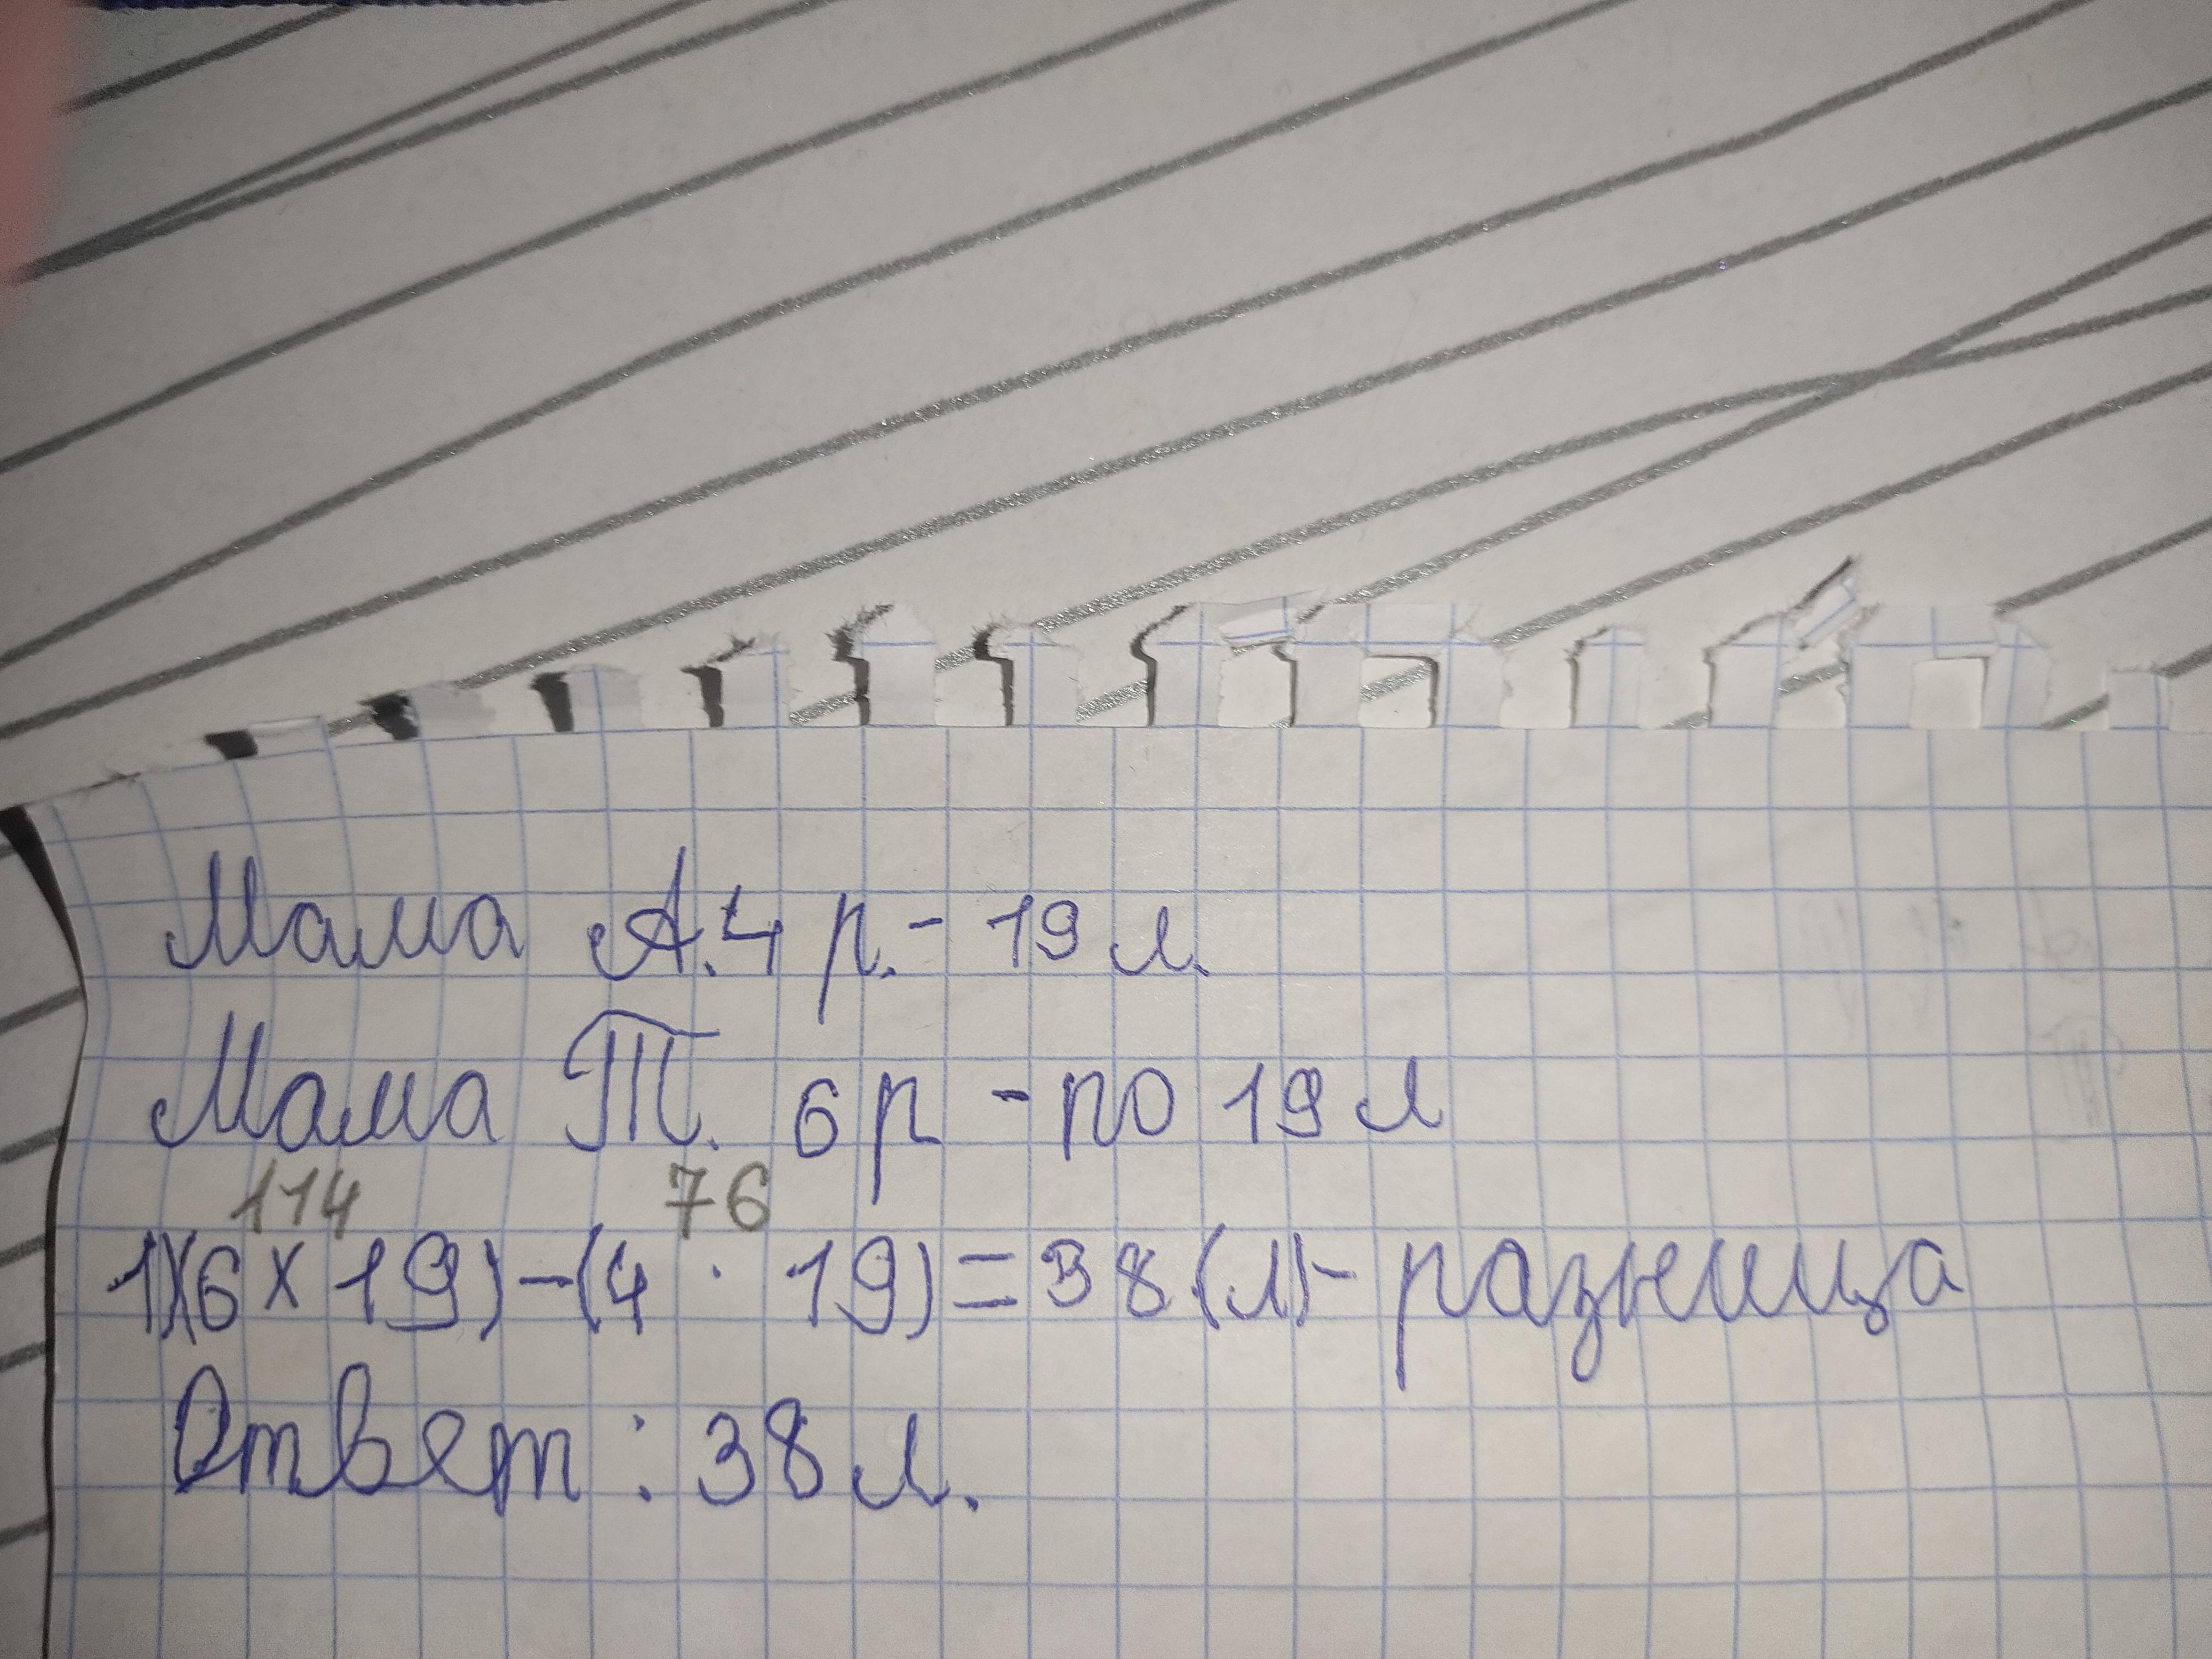 Мама А. 4 р. - 19 л.
Мама Т. 6 р - по 19 л
114 76
1)(6 x 19) - (4 · 19) = 38 (л) - разница
Ответ : 38 л.